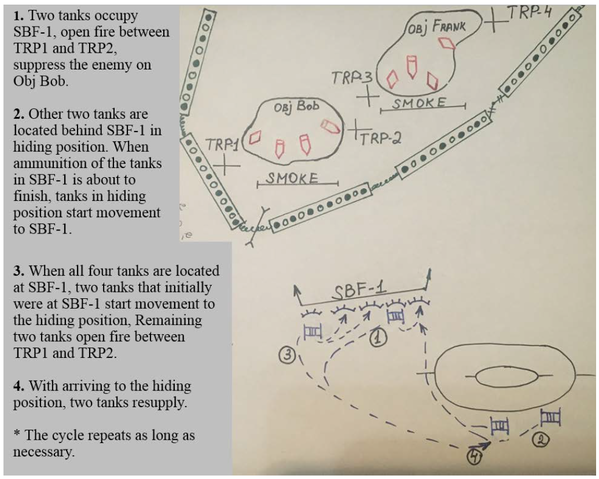 1. Two tanks occupy
SBF-1, open fire between
TRP1 and TRP2,
suppress the enemy on
Obj Bob.
2. Other two tanks are
located behind SBF-1 in
hiding position. When
ammunition of the tanks
in SBF-1 is about to
finish, tanks in hiding
position start movement
to SBF-1.
3. When all four tanks are located
at SBF-1, two tanks that initially
were at SBF-1 start movement to
the hiding position, Remaining
two tanks open fire between
TRP1 and TRP2.
4. With arriving to the hiding
position, two tanks resupply.
* The cycle repeats as long as
necessary.
TRP-4
Obj FRANK
TRP-3
SMOKE
Obj Bob
TRP1
TRP-2
SMOKE
SBF-1
1
3
2
4